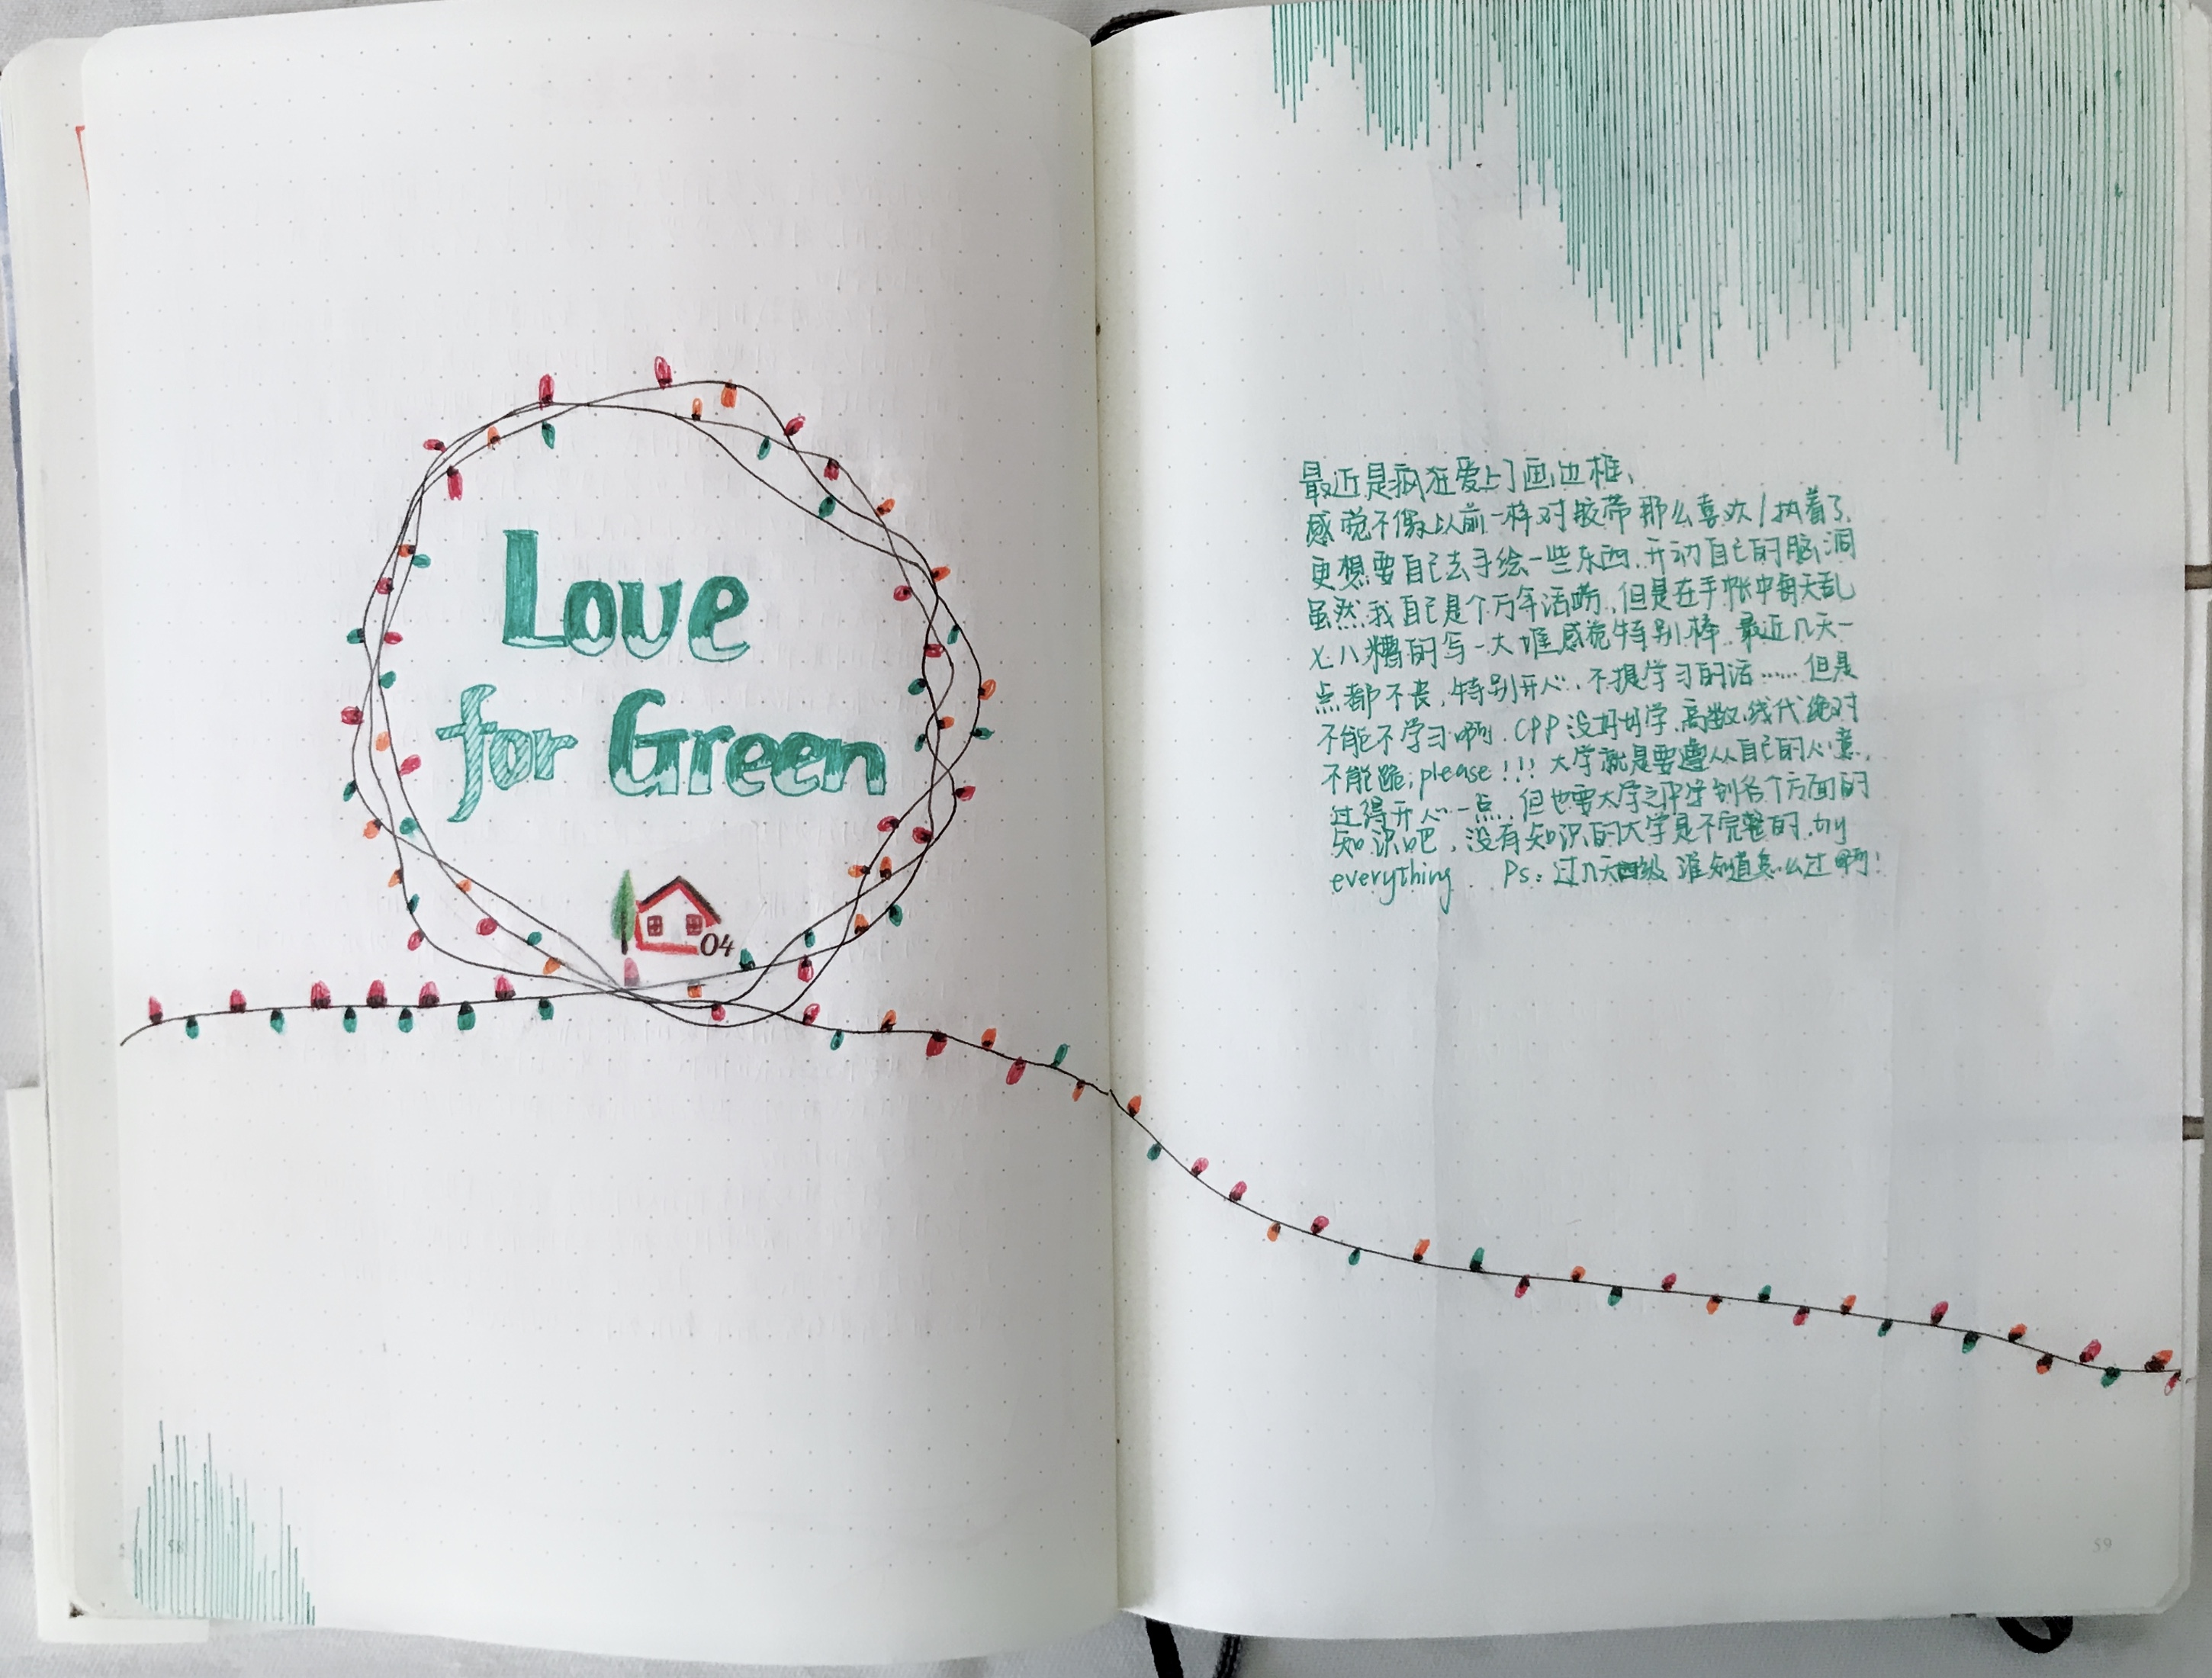 Love
for Green
04
58
最近是疯狂爱上了画边框,
感觉不像以前一样对胶带那么喜欢/执着了.
更想要自己去手绘一些东西.开动自己的脑洞
虽然我自己是个万年话唠,但是在手帐中每天乱
七八糟的写一大堆感觉特别棒.最近几天一
点都不丧,特别开心.不提学习的话……但是
不能不学习啊.CPP没好好学.高数.线代绝对
不能跪,please!!!大学就是要遵从自己的心意,
过得开心一点.但也要大学之中学到各个方面的
知识吧,没有知识的大学是不完整的.try
everything. Ps:过几天四级谁知道怎么过啊!
59